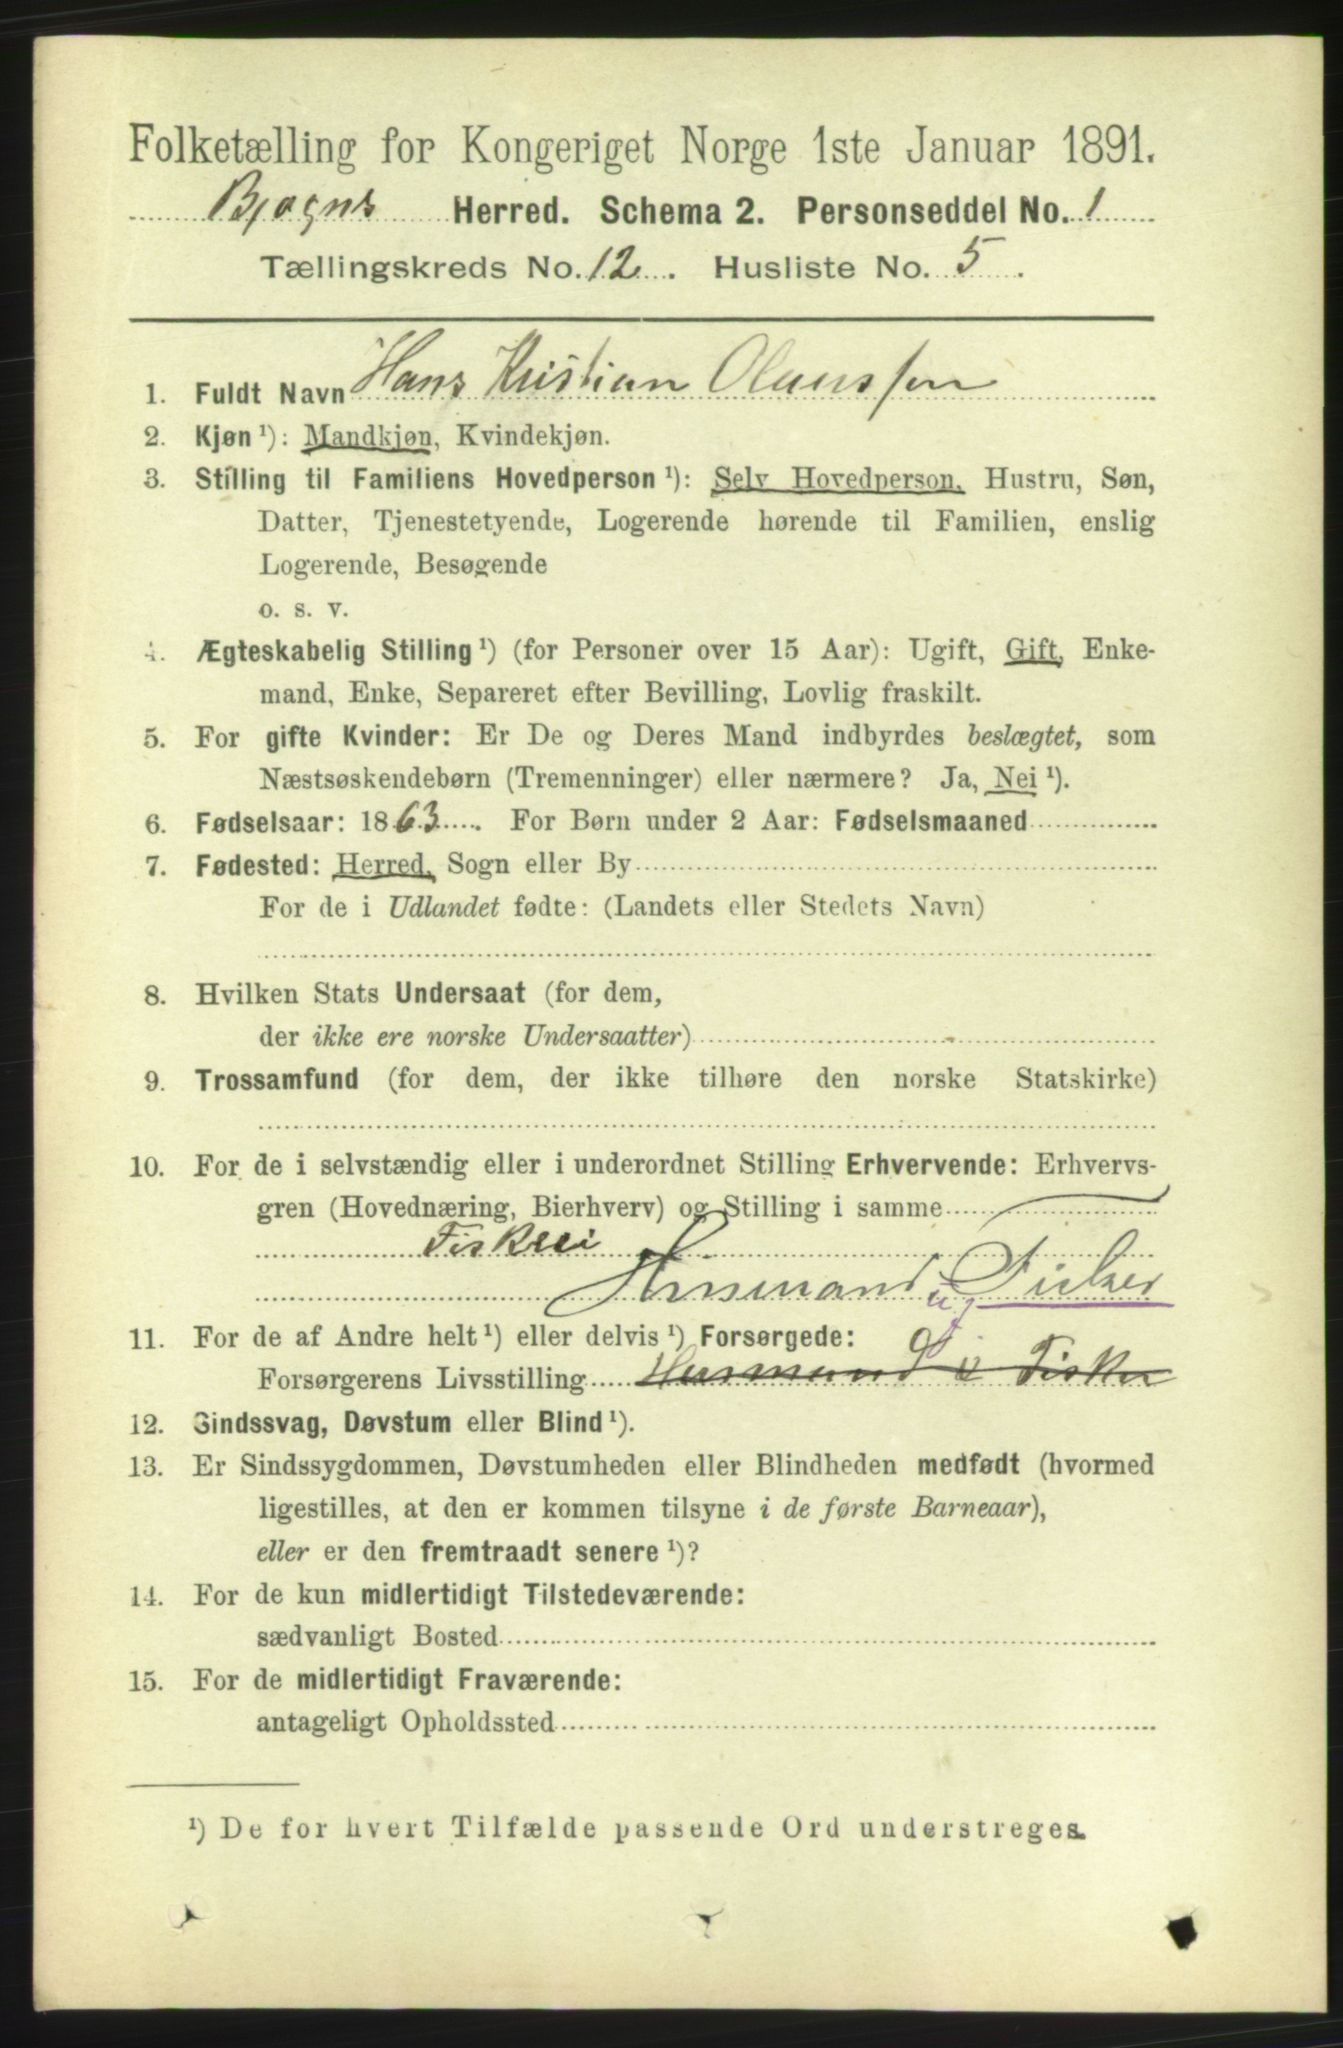 Folketælling for Kongeriget Norge 1ste Januar 1891.
Bjøgns Herred. Schema 2. Personseddel No. 1
Tællingskreds No. 12. Husliste No. 5.
1. Fuldt Navn Hans Kristian Olaussen
2. Kjøn ¹): Mandkjøn, Kvindekjøn.
3. Stilling til Familiens Hovedperson ¹): Selv Hovedperson, Hustru, Søn,
Datter, Tjenestetyende, Logerende hørende til Familien, enslig
Logerende, Besøgende
o. s. v.
4. Ægteskabelig Stilling ¹) (for Personer over 15 Aar): Ugift, Gift, Enke-
mand, Enke, Separeret efter Bevilling, Lovlig fraskilt.
5. For gifte Kvinder: Er De og Deres Mand indbyrdes beslægtet, som
Næstsøskendebørn (Tremenninger) eller nærmere? Ja, Nei ¹).
6. Fødselsaar: 1863. For Børn under 2 Aar: Fødselsmaaned
7. Fødested: Herred, Sogn eller By
For de i Udlandet fødte: (Landets eller Stedets Navn)
8. Hvilken Stats Undersaat (for dem,
der ikke ere norske Undersaatter)
9. Trossamfund (for dem, der ikke tilhøre den norske Statskirke)
10. For de i selvstændig eller i underordnet Stilling Erhvervende: Erhvervs-
gren (Hovednæring, Bierhverv) og Stilling i samme
Fiskeri
Husmand og Fisker
11. For de af Andre helt ¹) eller delvis ¹) Forsørgede:
Forsørgerens Livsstilling Husmand & Fisker
12. Sindssvag, Døvstum eller Blind ¹).
13. Er Sindssygdommen, Døvstumheden eller Blindheden medfødt (hvormed
ligestilles, at den er kommen tilsyne i de første Barneaar),
eller er den fremtraadt senere ¹)?
14. For de kun midlertidigt Tilstedeværende:
sædvanligt Bosted
15. For de midlertidigt Fraværende:
antageligt Opholdssted
¹) De for hvert Tilfælde passende Ord understreges.